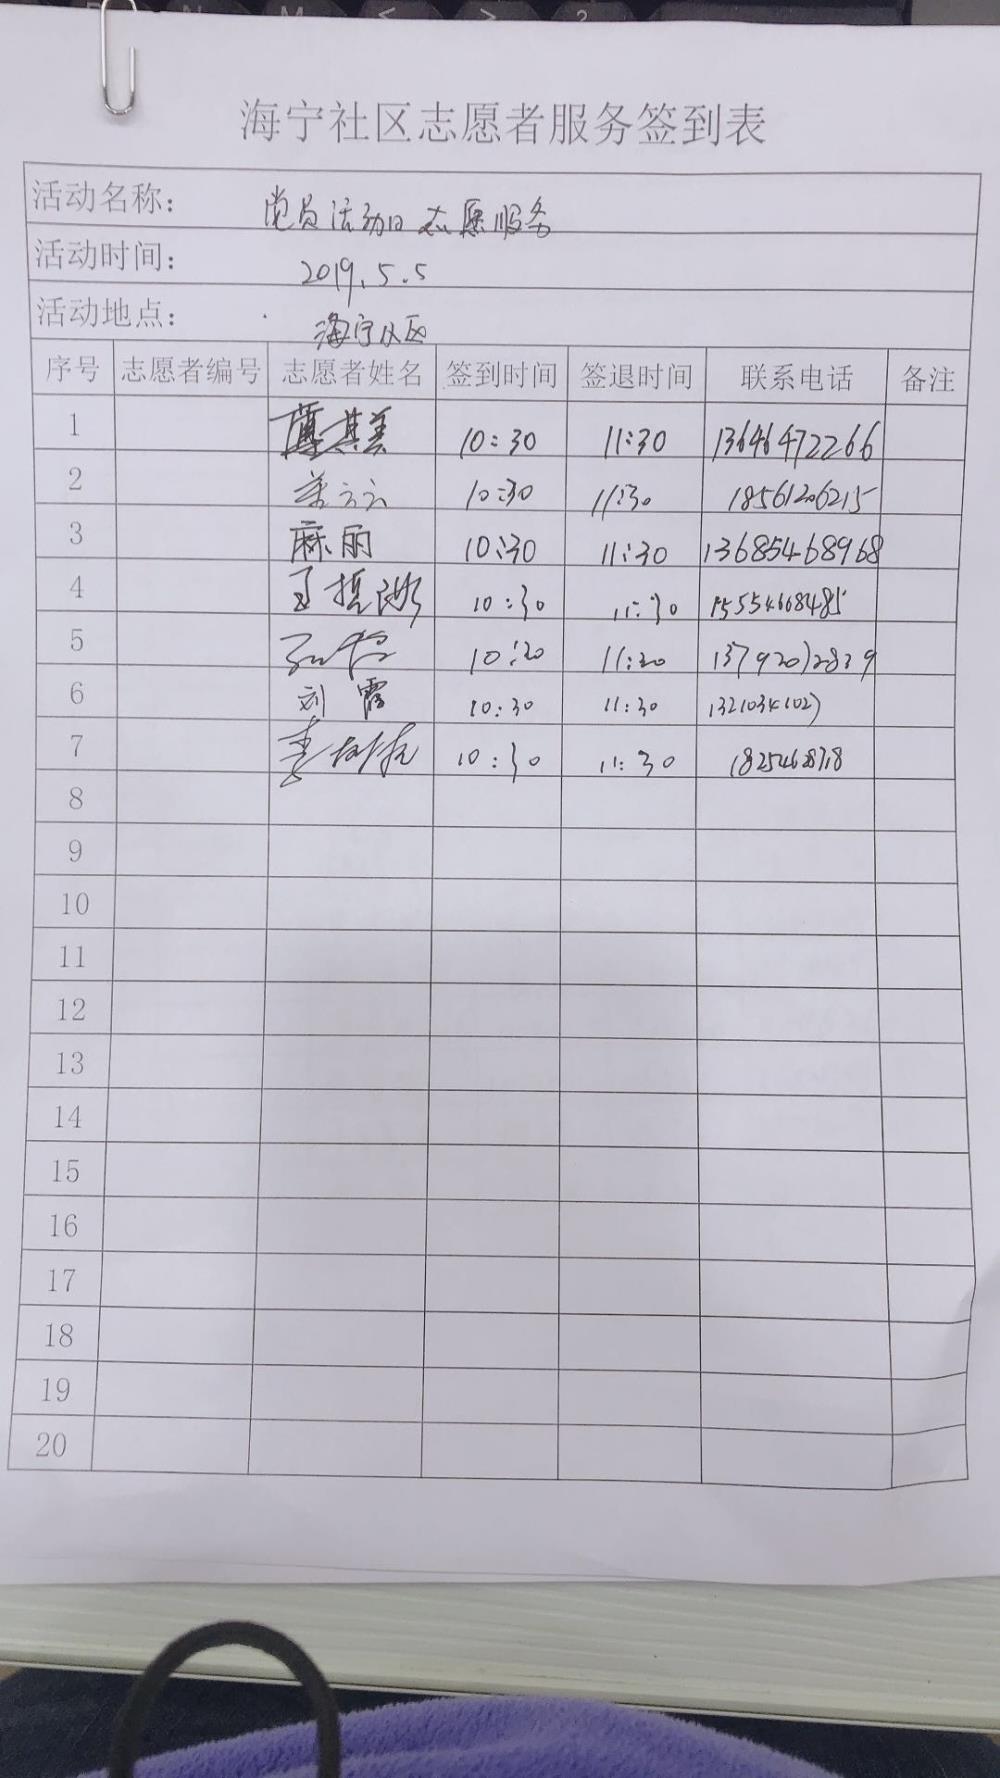 海宁社区志愿者服务签到表
活动名称： 党员活动日志愿服务
活动时间： 2019.5.5
活动地点： 海宁社区
序号 志愿者编号 志愿者姓名 签到时间 签退时间 联系电话 备注
1 10:30 11:30 13646472266
2 10:30 11:30 18561206215
3 麻丽 10:30 11:30 13685468968
4 10:30 11:30 15554668485
5 10:30 11:30
6 刘霞 10:30 11:30 13210341027
7 10:30 11:30
8
9
10
11
12
13
14
15
16
17
18
19
20